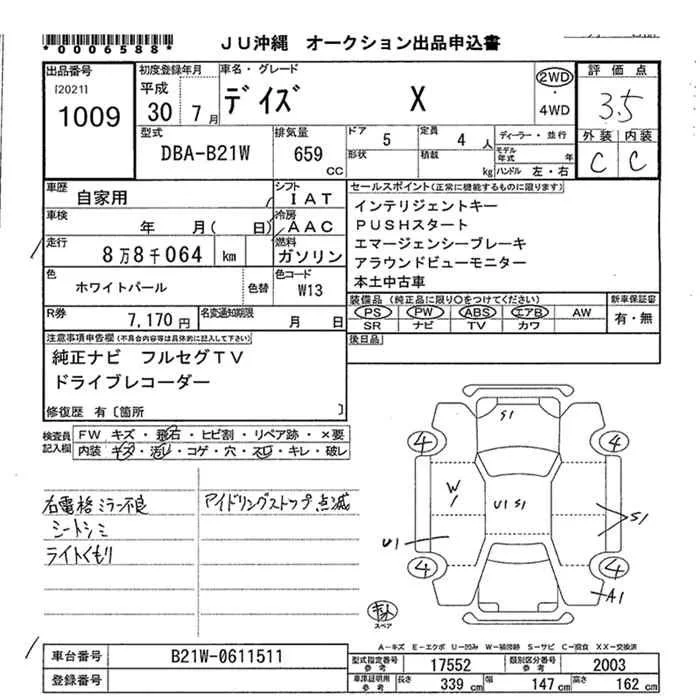 *0006588*
JU沖縄 オークション出品申込書
出品番号 初度登録年月 車名・グレード 評価点
[2021] 平成 2WD
1009 30 7月 デイズ X ・ 3.5
4WD
型式 排気量 ドア 5 定員 4人 ディーラー・並行 外装 内装
DBA-B21W 659CC 形状 積載 kg モデル年式 年 C C
ハンドル 左・右
車歴 自家用 シフト IAT セールスポイント(正常に機能するものに限ります)
車検 年 月( 日) 冷房 AAC インテリジェントキー
PUSHスタート
走行 8万8千064 km 燃料 ガソリン エマージェンシーブレーキ
アラウンドビューモニター
色 ホワイトパール 色替 色コード W13 本土中古車
装備品(純正品に限り○をつけてください) 新車保証書
R券 7,170円 名変通知期限 月 日 PS PW ABS エアB AW 有・無
SR ナビ TV カワ
注意事項申告欄(不具合内容等は具体的に記入して下さい) 後日品
純正ナビ フルセグTV
ドライブレコーダー
修復歴 有〔箇所 〕
検査員 FW キズ・飛石・ヒビ割・リペア跡・×要
記入欄 内装 キズ・汚レ・コゲ・穴・スレ・キレ・破レ
右電格ミラー不良 アイドリングストップ点滅
シートシミ
ライトくもり
S1
4 4
W U1 S1 S1
U1
4 4
A1
スペア
A-キズ E-エクボ U-凹み W-補修跡 S-サビ C-腐食 XX-交換済
車台番号 B21W-0611511 型式指定番号 参考 17552 類別区分番号 参考 2003
登録番号 車庫証明用 参考 長さ 339cm 幅 147cm 高さ 162cm